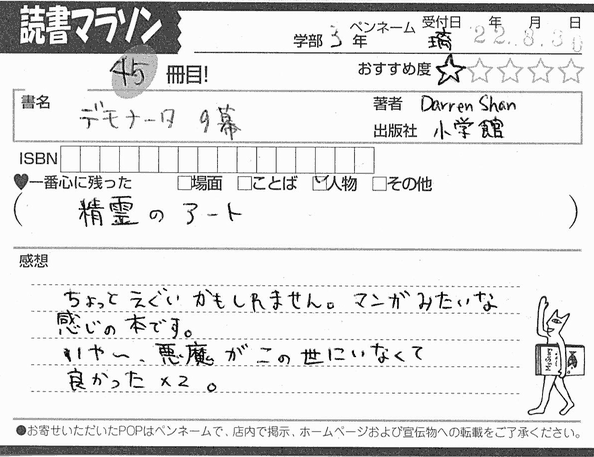 読書マラソン
学部 3 年 ペンネーム 璃 受付日 年 月 日 22.8.30
45 冊目! おすすめ度 ★☆☆☆☆
書名 デモナータ 9幕 著者 Darren Shan
出版社 小学館
ISBN
♥一番心に残った □場面 □ことば ☑人物 □その他
( 精霊のアート )
感想
ちょっとえぐいかもしれません。マンガみたいな
感じの本です。
いや~、悪魔がこの世にいなくて
良かった×2。
●お寄せいただいたPOPはペンネームで、店内で掲示、ホームページおよび宣伝物への転載をご了承ください。